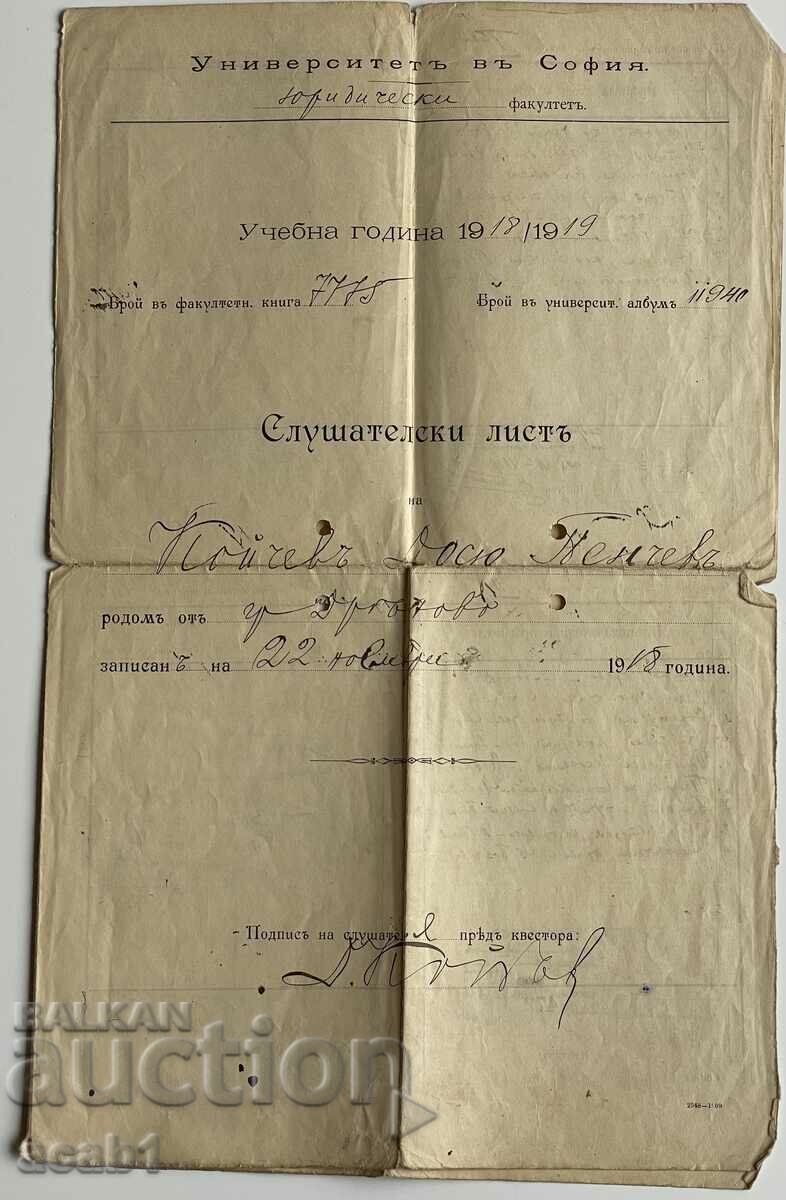 Университетъ въ София.
юридически факултетъ.
Учебна година 1918/1919
Брой въ факултетн. книга 7775 Брой въ университ. албумъ 11940
Слушателски листъ
на
Койчевъ Досю Пенчевъ
родомъ отъ гр Дряново
записанъ на 22 ноември 1918 година.
Подписъ на слушателя прѣдъ квестора:
Д. Койчев
BALKAN
auction
acab1